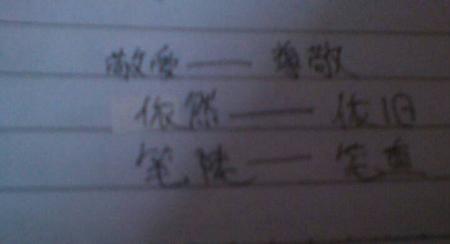 敬爱——尊敬
依然——依旧
笔陡——笔直